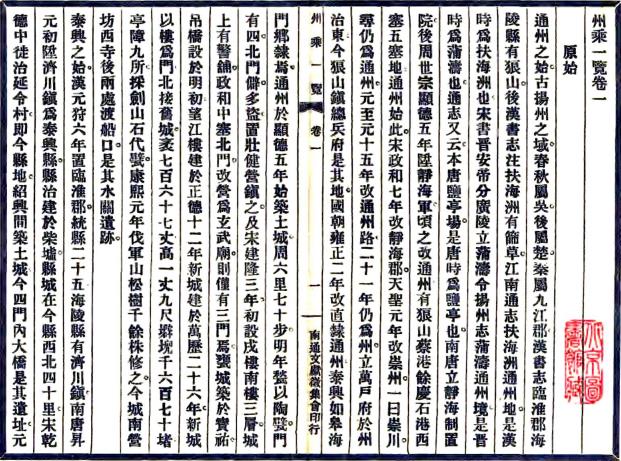 州乘一覽卷一
原始
通州之始古揚州之域春秋屬吳後屬楚秦屬九江郡漢書志臨淮郡海
陵縣有狼山後漢書志注扶海洲有篩草江南通志扶海洲通州地是漢
時爲扶海洲也宋書晉安帝分廣陵立蒲濤令揚州志蒲濤通州境是晉
時爲蒲濤也通志又云本唐鹽亭場是唐時爲鹽亭也南唐立靜海制置
院後周世宗顯德五年陞靜海軍頃之改通州有狼山蔡港餘慶石港西
寨五寨地通州始此宋政和七年改靜海郡天聖元年改崇州一曰崇川
尋仍爲通州元至元十五年改通州路二十一年仍爲州立萬戶府於州
治東今狼山鎮總兵府是其地國朝雍正二年改直隸通州泰興如皋海
州乘一覽 卷一 一 南通文獻徵集會印行
門鄉隸焉通州於顯德五年始築土城周六里七十步明年甃以陶甓門
有四北門僻多盜置壯健營鎮之及宋建隆三年初設戍樓南樓三層城
上有警舖政和中塞北門改營爲玄武廟則僅有三門焉甕城築於寶祐
吊橋設於明初望江樓建於正德十二年新城建於萬歷二十六年新城
以樓爲門北接舊城袤七百六十七丈高一丈九尺塀堄千六百七十堵
亭障九所採劍山石代甓康熙元年伐軍山松樹千餘株修之今城南營
坊西寺後兩處渡船口是其水關遺跡
泰興之始漢元狩六年置臨淮郡統縣二十五海陵縣有濟川鎮南唐昇
元初陞濟川鎮爲泰興縣縣治建於柴墟縣城在今縣西北四十里宋乾
德中徙治延令村即今縣地紹興間築土城今四門內大橋是其遺址元